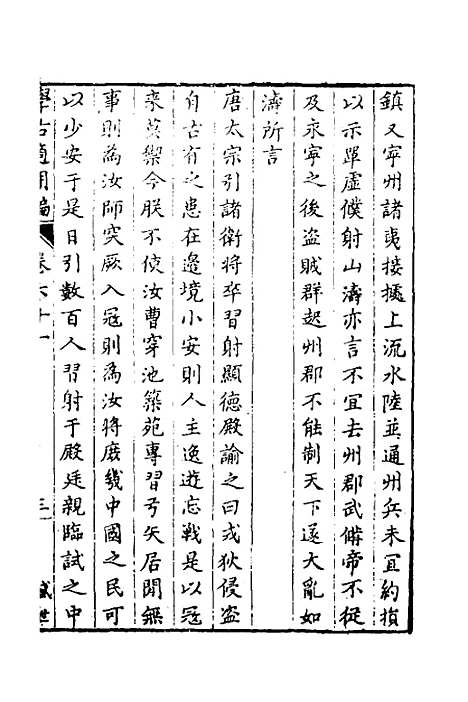 鎮又寧州諸夷接㩀上流水陸並通州兵未宜約損
以示單虛僕射山濤亦言不宜去州郡武俻帝不從
及永寧之後盜賊群起州郡不能制天下遂大亂如
濤所言
唐太宗引諸衛將卒習射顯德殿諭之曰戎狄侵盜
自古有之患在邉境小安則人主逸遊忘戰是以寇
来莫禦今朕不使汝曹穿池築苑專習弓矢居閒無
事則為汝師突厥入寇則為汝將庶幾中國之民可
以少安于是日引數百人習射于殿廷親臨試之中
學古適用編
卷六十一
三